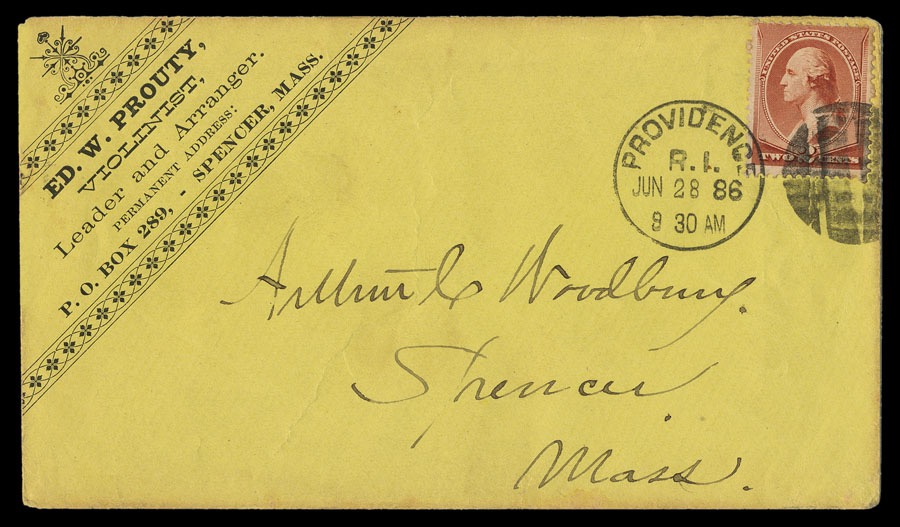 ED. W. PROUTY,
VIOLINIST,
Leader and Arranger.
PERMANENT ADDRESS:
P. O. BOX 289, - SPENCER, MASS.
UNITED STATES POSTAGE
TWO CENTS
PROVIDENCE
R.I.
JUN 28 86
8 30 AM
Arthur C Woodbury.
Spencer
Mass.